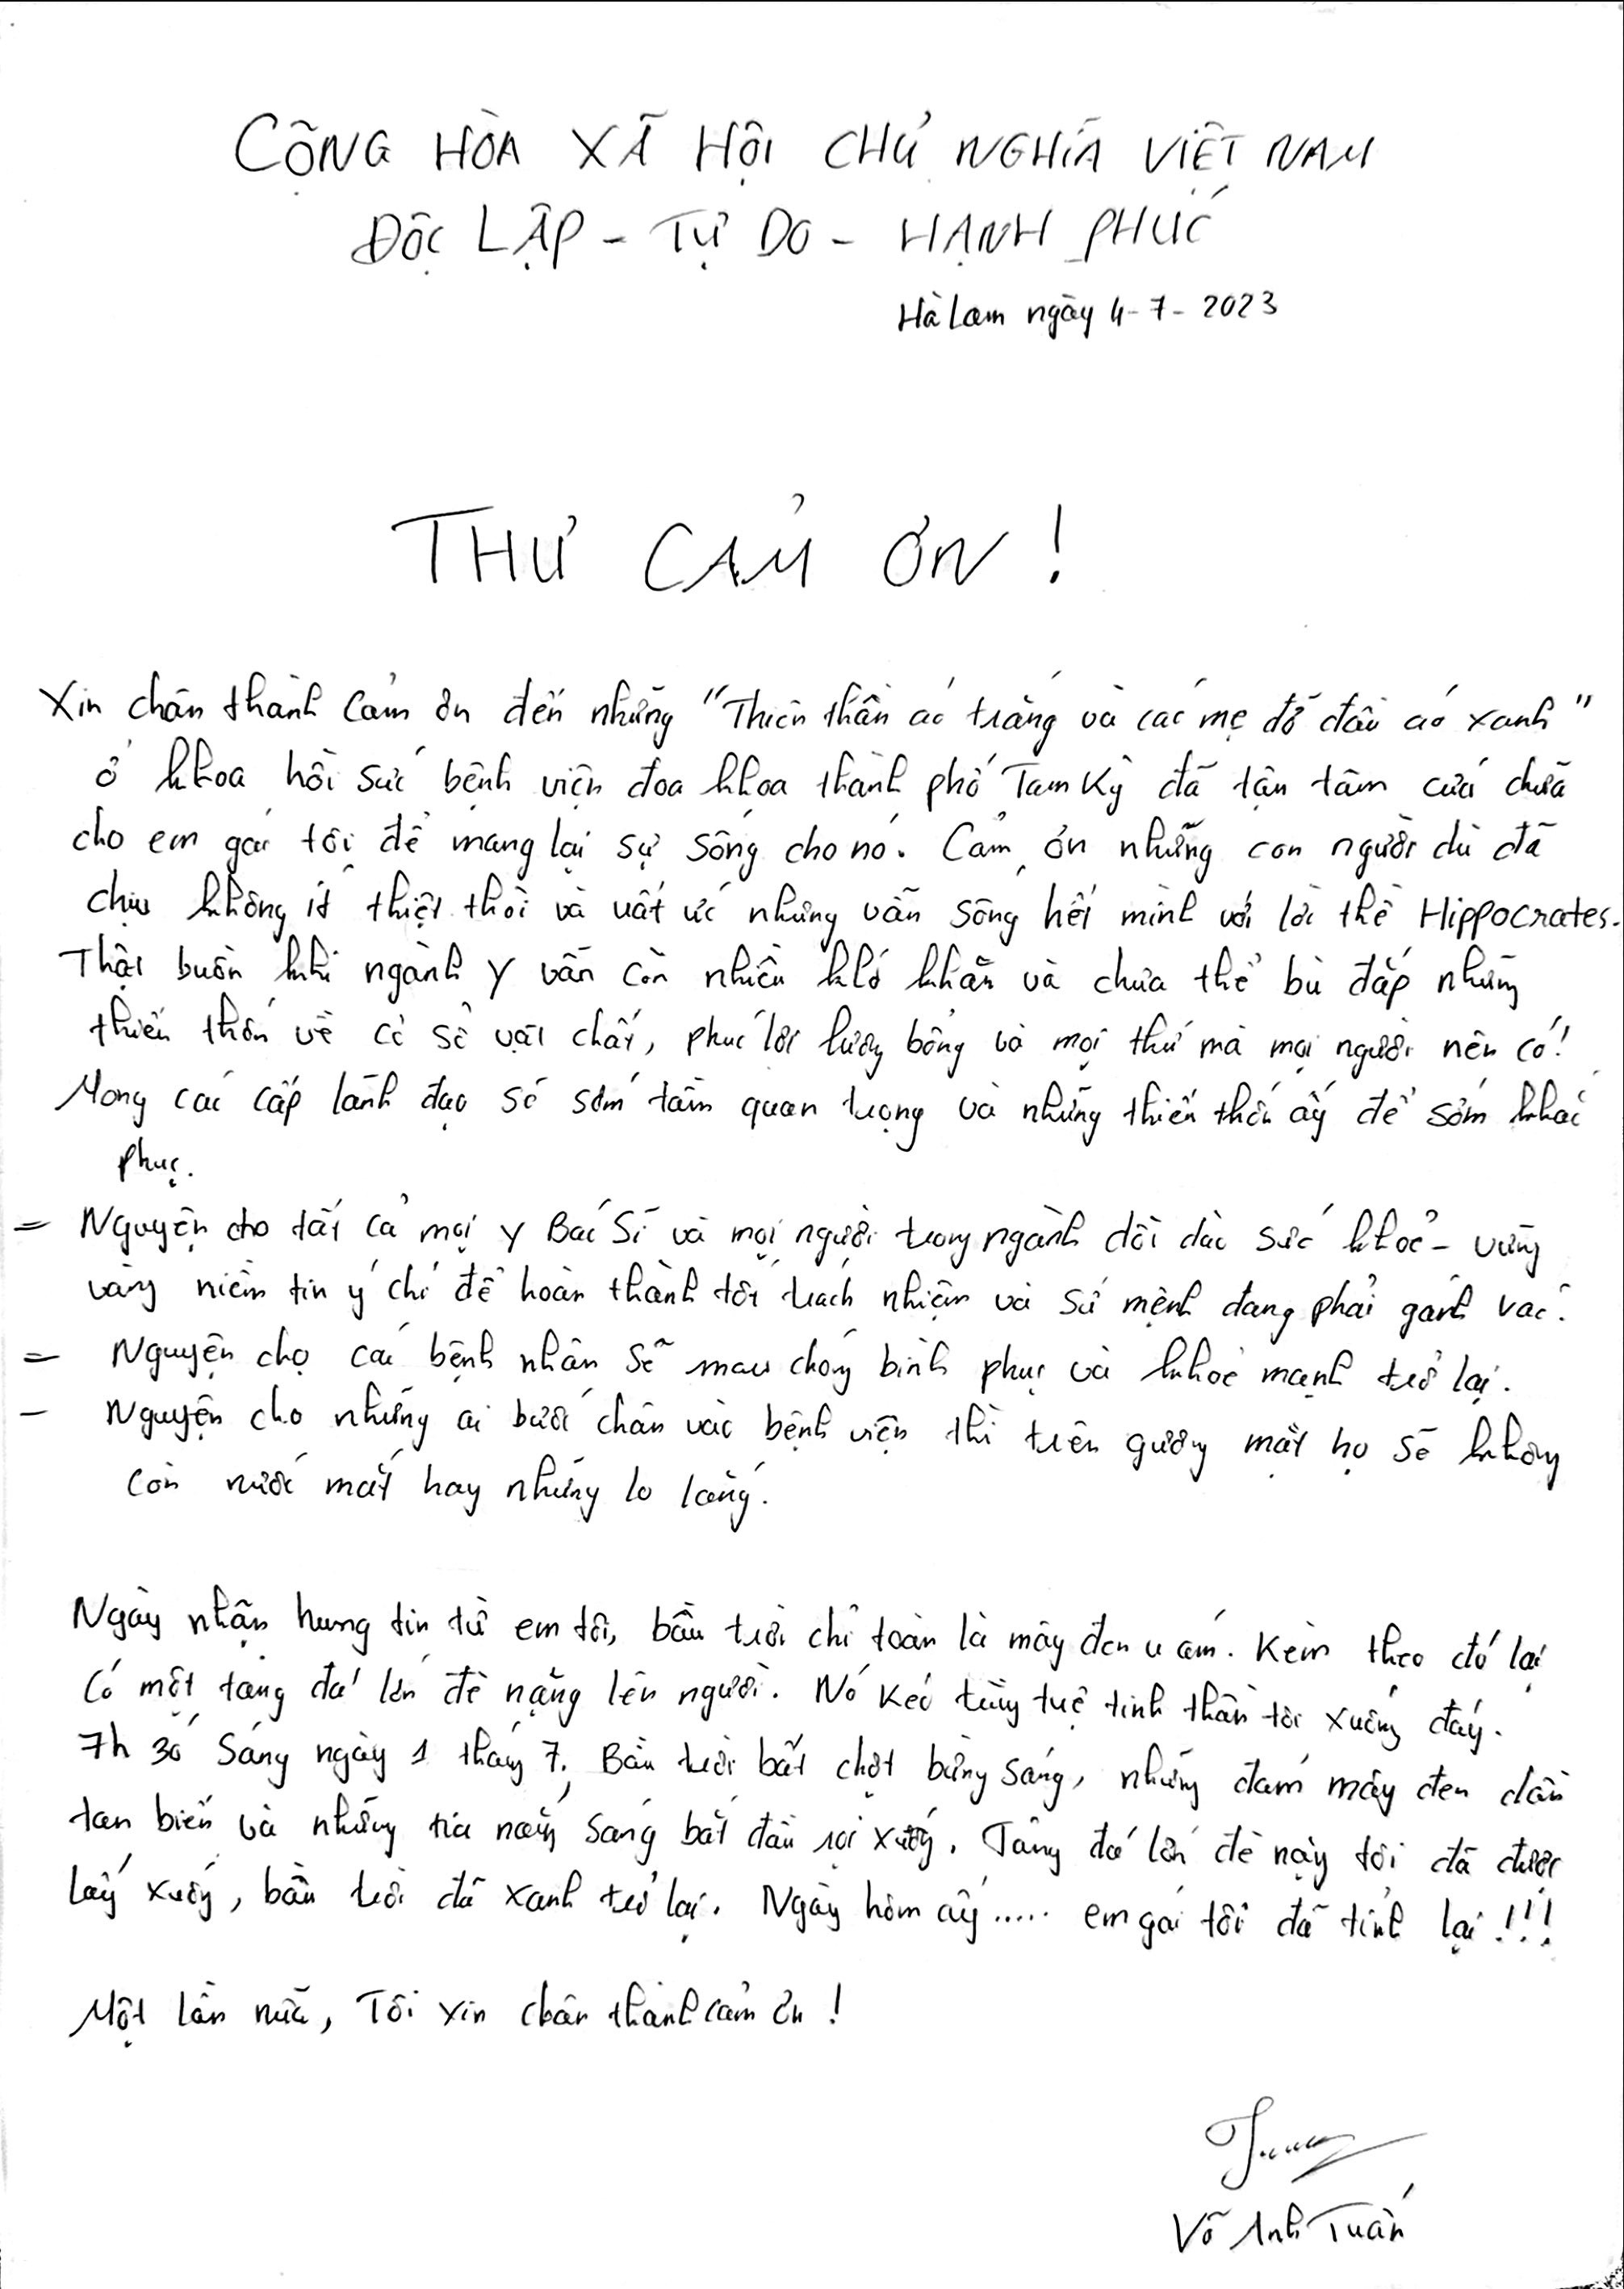 CỘNG HÒA XÃ HỘI CHỦ NGHĨA VIỆT NAM
ĐỘC LẬP - TỰ DO - HẠNH PHÚC
Hà Lam ngày 4-7-2023
THƯ CẢM ƠN !
Xin chân thành cảm ơn đến những "Thiên thần áo trắng và các mẹ đỡ đầu áo xanh"
ở khoa hồi sức bệnh viện đoa khoa thành phố Tam Kỳ đã tận tâm cứu chữa
cho em gái tôi để mang lại sự sống cho nó. Cảm ơn những con người dù đã
chịu không ít thiệt thòi và uất ức nhưng vẫn sống hết mình với lời thề Hippocrates.
Thật buồn khi ngành y vẫn còn nhiều khó khăn và chưa thể bù đắp những
thiếu thốn về cơ sở vật chất, phúc lợi lương bổng và mọi thứ mà mọi người nên có!
Mong các cấp lãnh đạo sẽ sớm tầm quan trọng và những thiếu thốn ấy để sớm khắc
phục.
= Nguyện cho tất cả mọi y Bác Sĩ và mọi người trong ngành dồi dào sức khoẻ - vững
vàng niềm tin ý chí để hoàn thành tốt trách nhiệm và sứ mệnh đang phải gánh vác.
= Nguyện cho các bệnh nhân sẽ mau chóng bình phục và khoẻ mạnh trở lại.
- Nguyện cho những ai bước chân vào bệnh viện thì trên gương mặt họ sẽ không
còn nước mắt hay những lo lắng.
Ngày nhận hung tin từ em tôi, bầu trời chỉ toàn là mây đen u ám. Kèm theo đó lại
có một tảng đá lớn đè nặng lên người. Nó kéo từng tuệ tinh thần tôi xuống đáy.
7h 30 sáng ngày 1 tháng 7. Bầu trời bất chợt bừng sáng, những đám mây đen dần
tan biến và những tia nắng sáng bắt đầu rọi xuống. Tảng đá lớn đè nặy tôi đã được
lấy xuống, bầu trời đã xanh trở lại. Ngày hôm ấy..... em gái tôi đã tỉnh lại !!!
Một lần nữa, Tôi xin chân thành cảm ơn !
Võ Anh Tuấn